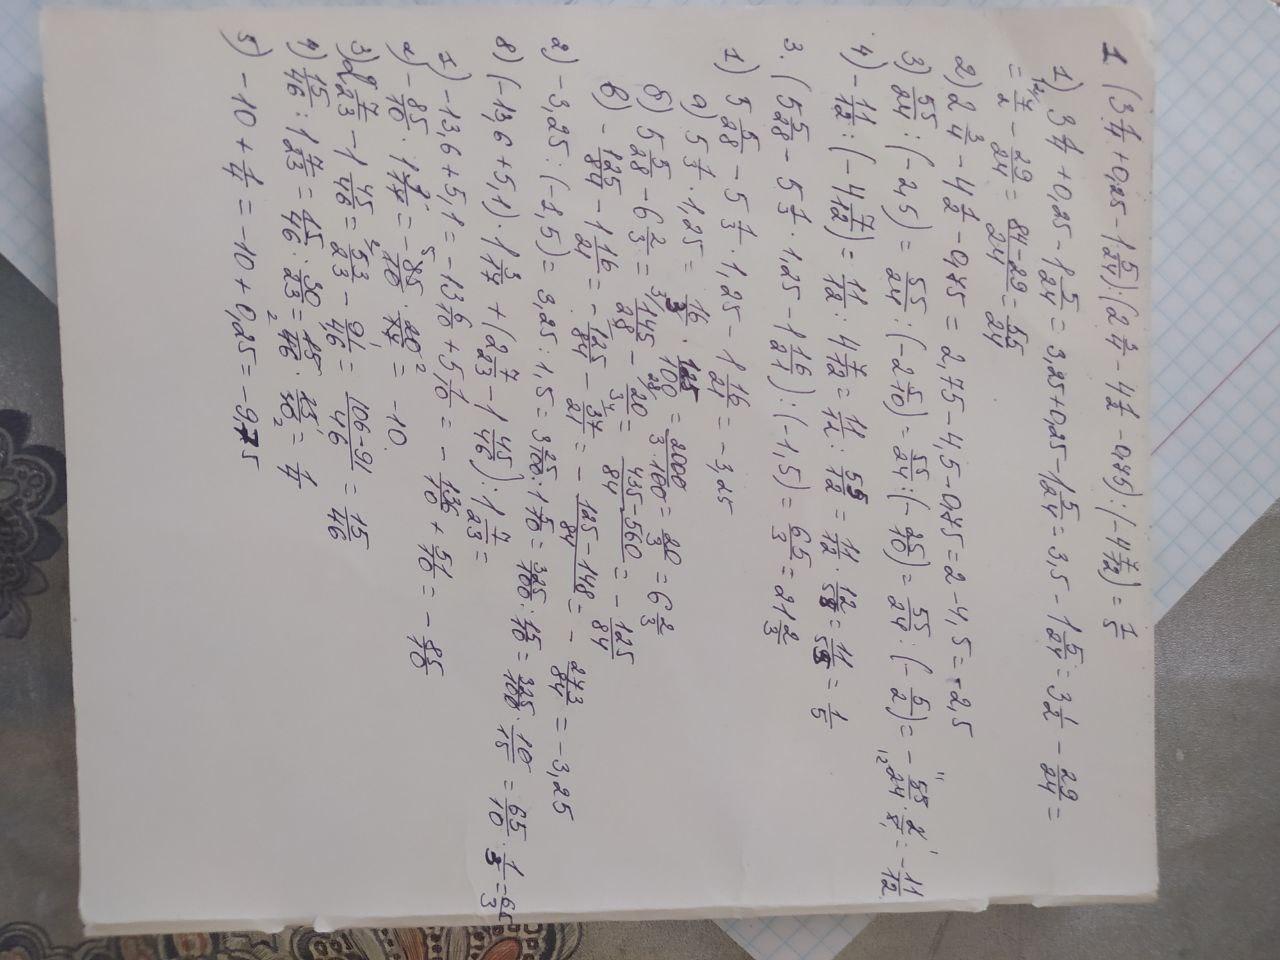 1 (3 1/4 + 0,25 - 1 5/24) : (2 3/4 - 4 1/2 - 0,75) : (-4 7/12) = 1/5
1) 3 1/4 + 0,25 - 1 5/24 = 3,25 + 0,25 - 1 5/24 = 3,5 - 1 5/24 = 3 1/2 - 29/24 =
= 7/2 - 29/24 = 84-29/24 = 55/24
2) 2 3/4 - 4 1/2 - 0,75 = 2,75 - 4,5 - 0,75 = 2 - 4,5 = -2,5
3) 55/24 : (-2,5) = 55/24 : (-2 5/10) = 55/24 : (-25/10) = 55/24 · (-5/2) = - 55·2/24·5 = -11/12
4) -11/12 : (-4 7/12) = 11/12 : 4 7/12 = 11/12 : 55/12 = 11/12 · 12/55 = 11/55 = 1/5
3. (5 5/28 - 5 1/3 · 1,25 - 1 16/21) : (-1,5) = 65/3 = 21 2/3
1) 5 5/28 - 5 1/3 · 1,25 - 1 16/21 = -3,25
а) 5 1/3 · 1,25 = 16/3 · 125/100 = 2000/3·100 = 20/3 = 6 2/3
б) 5 5/28 - 6 2/3 = 145/28 - 20/3 = 435-560/84 = - 125/84
в) - 125/84 - 1 16/21 = - 125/84 - 37/21 = - 125-148/84 = - 273/84 = -3,25
2) -3,25 : (-1,5) = 3,25 : 1,5 = 3 25/100 : 1 5/10 = 325/100 : 15/10 = 325/100 · 10/15 = 65/10 · 1/3 = 65/3
8) (-13,6 + 5,1) · 1 3/17 + (2 7/23 - 1 45/46) : 1 7/23 =
1) -13,6 + 5,1 = -13 6/10 + 5 1/10 = - 136/10 + 51/10 = - 85/10
2) - 85/10 · 1 3/17 = - 85/10 · 20/17 = -10.
3) 2 7/23 - 1 45/46 = 53/23 - 91/46 = 106-91/46 = 15/46
4) 15/46 : 1 7/23 = 15/46 : 30/23 = 15/46 · 23/30 = 1/4
5) -10 + 1/4 = -10 + 0,25 = -9,75